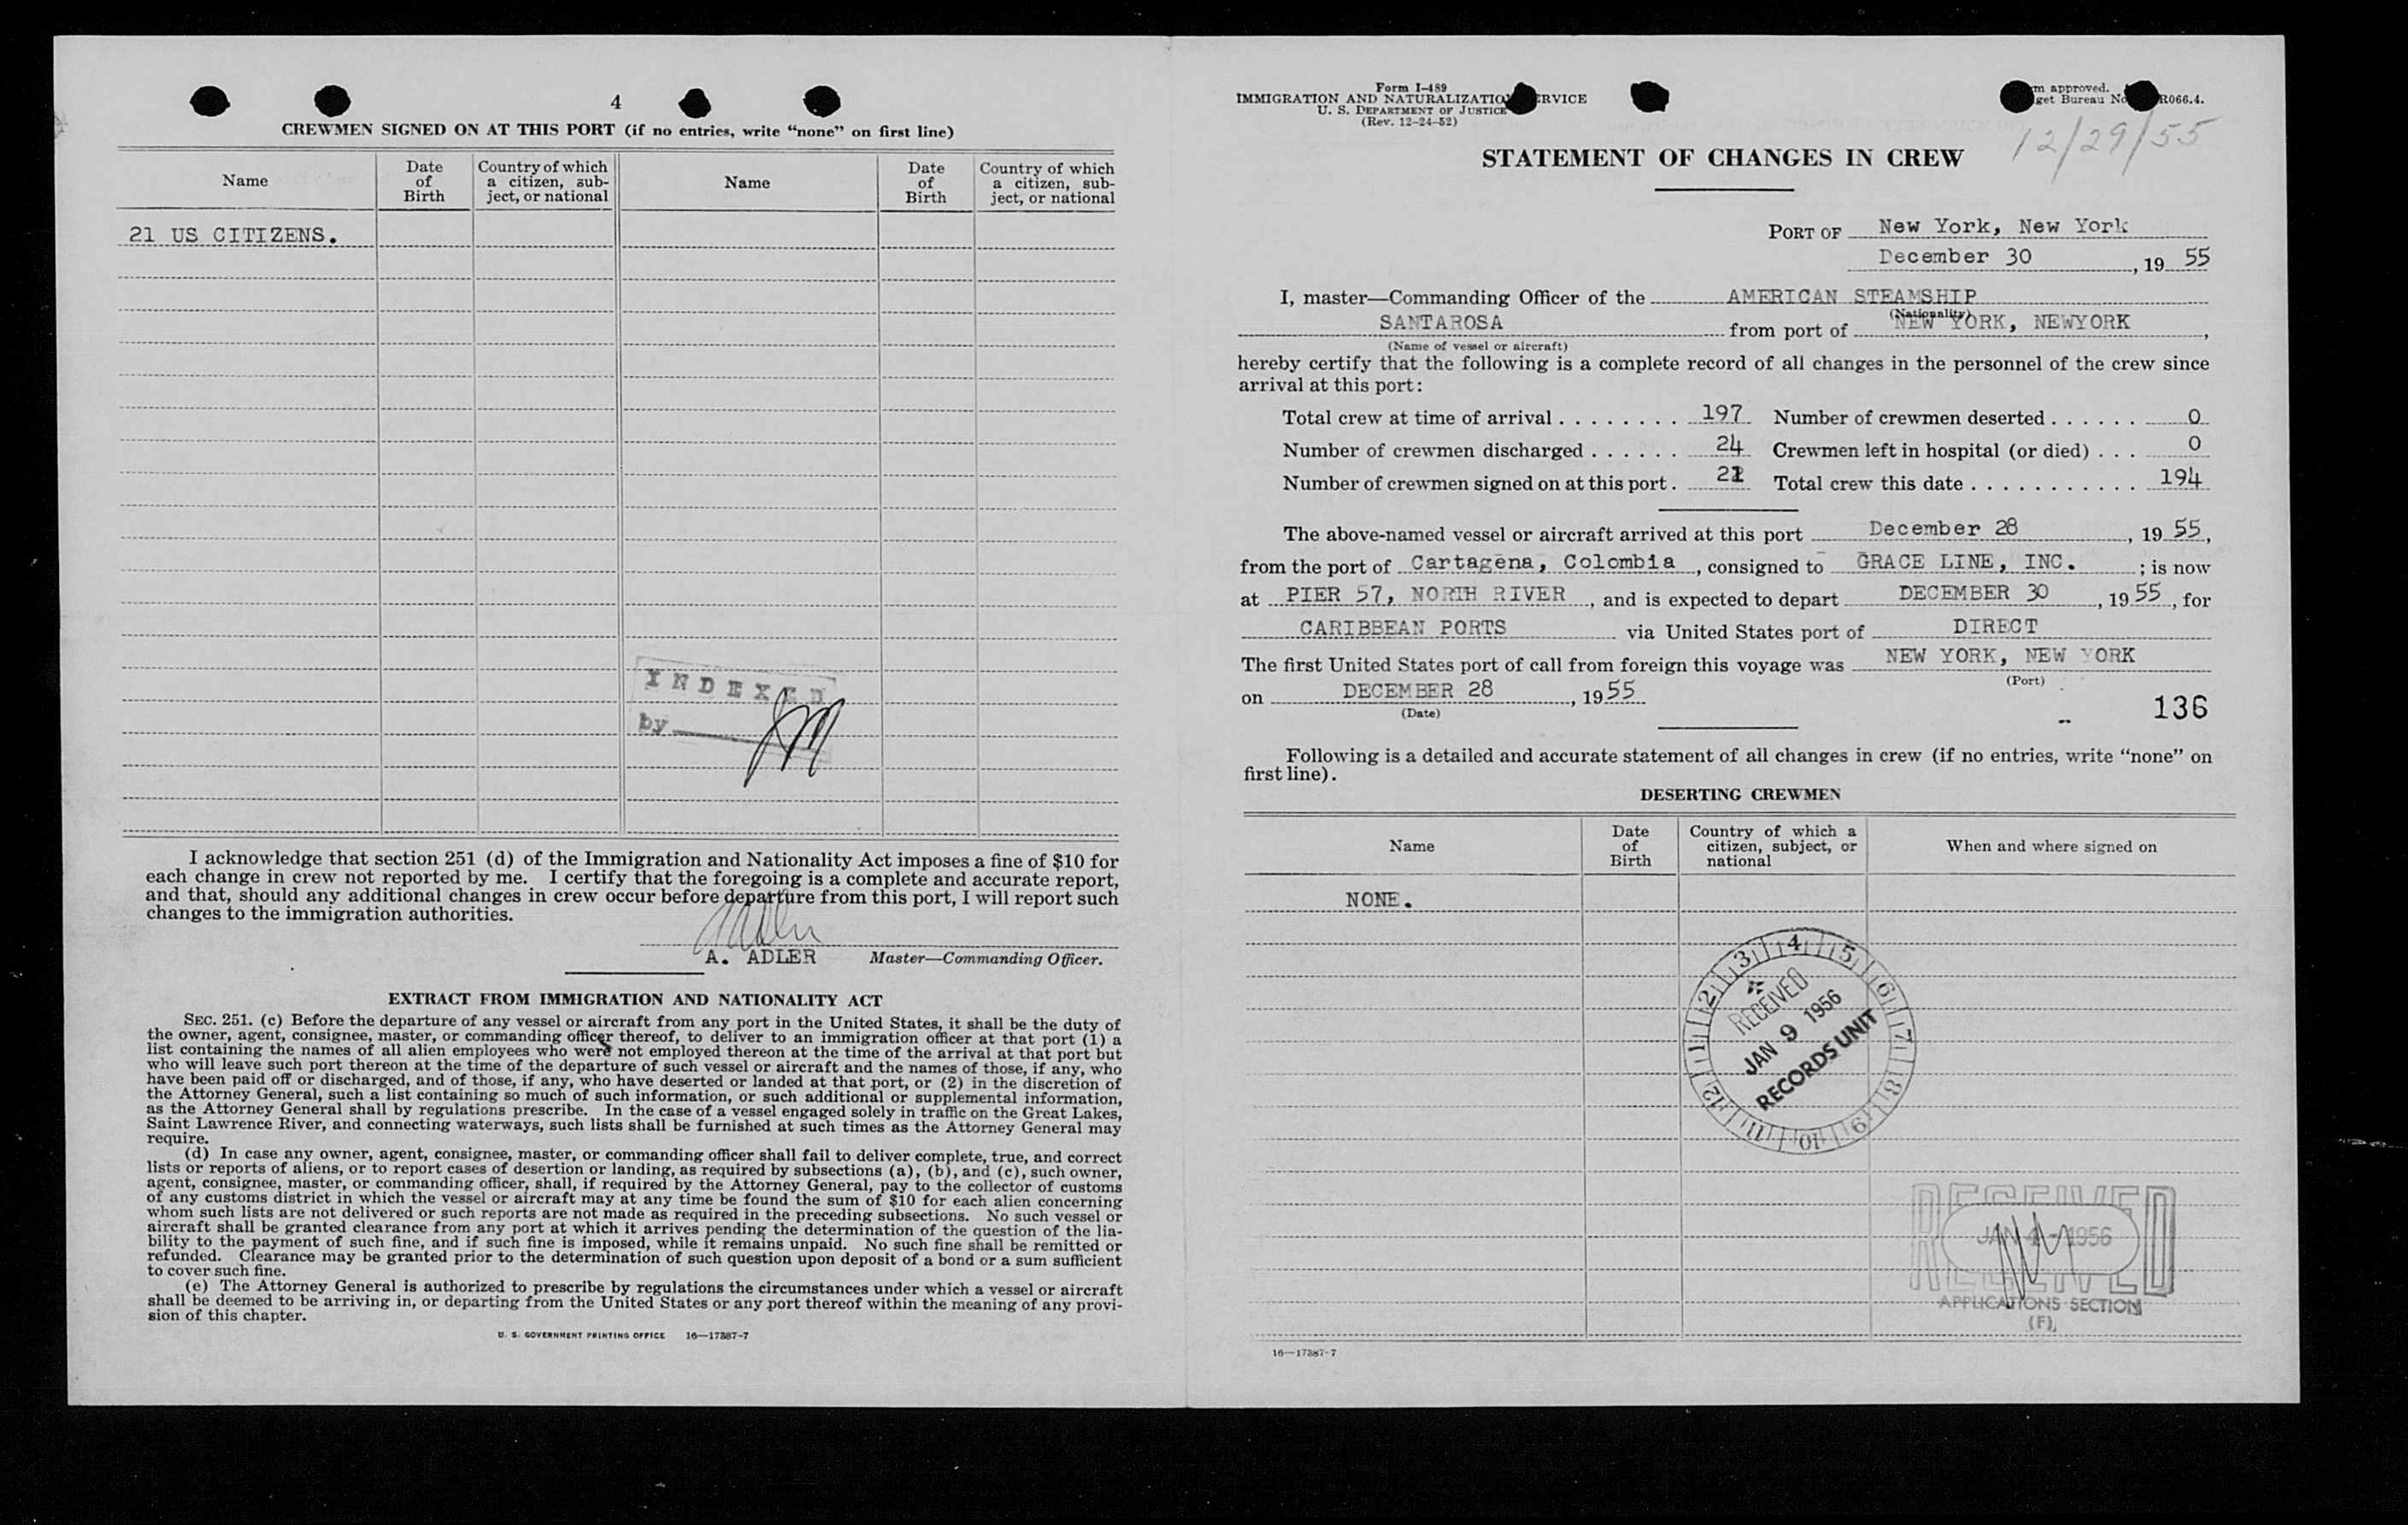 4
CREWMEN SIGNED ON AT THIS PORT (if no entries, write “none” on first line)
Name
Date of Birth
Country of which a citizen, sub-ject, or national
Name
Date of Birth
Country of which a citizen, sub-ject, or national
21 US CITIZENS.
INDEXED
by
I acknowledge that section 251 (d) of the Immigration and Nationality Act imposes a fine of $10 for
each change in crew not reported by me. I certify that the foregoing is a complete and accurate report,
and that, should any additional changes in crew occur before departure from this port, I will report such
changes to the immigration authorities.
A. ADLER Master—Commanding Officer.
EXTRACT FROM IMMIGRATION AND NATIONALITY ACT
SEC. 251. (c) Before the departure of any vessel or aircraft from any port in the United States, it shall be the duty of
the owner, agent, consignee, master, or commanding officer thereof, to deliver to an immigration officer at that port (1) a
list containing the names of all alien employees who were not employed thereon at the time of the arrival at that port but
who will leave such port thereon at the time of the departure of such vessel or aircraft and the names of those, if any, who
have been paid off or discharged, and of those, if any, who have deserted or landed at that port, or (2) in the discretion of
the Attorney General, such a list containing so much of such information, or such additional or supplemental information,
as the Attorney General shall by regulations prescribe. In the case of a vessel engaged solely in traffic on the Great Lakes,
Saint Lawrence River, and connecting waterways, such lists shall be furnished at such times as the Attorney General may
require.
(d) In case any owner, agent, consignee, master, or commanding officer shall fail to deliver complete, true, and correct
lists or reports of aliens, or to report cases of desertion or landing, as required by subsections (a), (b), and (c), such owner,
agent, consignee, master, or commanding officer, shall, if required by the Attorney General, pay to the collector of customs
of any customs district in which the vessel or aircraft may at any time be found the sum of $10 for each alien concerning
whom such lists are not delivered or such reports are not made as required in the preceding subsections. No such vessel or
aircraft shall be granted clearance from any port at which it arrives pending the determination of the question of the lia-
bility to the payment of such fine, and if such fine is imposed, while it remains unpaid. No such fine shall be remitted or
refunded. Clearance may be granted prior to the determination of such question upon deposit of a bond or a sum sufficient
to cover such fine.
(e) The Attorney General is authorized to prescribe by regulations the circumstances under which a vessel or aircraft
shall be deemed to be arriving in, or departing from the United States or any port thereof within the meaning of any provi-
sion of this chapter.
U. S. GOVERNMENT PRINTING OFFICE 16—17387-7
Form I-489
IMMIGRATION AND NATURALIZATION SERVICE
U. S. DEPARTMENT OF JUSTICE
(Rev. 12-24-52)
approved.
Bureau No. R066.4.
12/29/55
STATEMENT OF CHANGES IN CREW
PORT OF New York, New York
December 30, 19 55
I, master—Commanding Officer of the AMERICAN STEAMSHIP
(Nationality)
SANTAROSA from port of NEW YORK, NEWYORK,
(Name of vessel or aircraft)
hereby certify that the following is a complete record of all changes in the personnel of the crew since
arrival at this port:
Total crew at time of arrival . . . . . . . . 197 Number of crewmen deserted . . . . . . 0
Number of crewmen discharged . . . . . . 24 Crewmen left in hospital (or died) . . . 0
Number of crewmen signed on at this port . 21 Total crew this date . . . . . . . . . . . 194
The above-named vessel or aircraft arrived at this port December 28, 19 55,
from the port of Cartagena, Colombia, consigned to GRACE LINE, INC. ; is now
at PIER 57, NORTH RIVER, and is expected to depart DECEMBER 30, 19 55, for
CARIBBEAN PORTS via United States port of DIRECT
The first United States port of call from foreign this voyage was NEW YORK, NEW YORK
(Port)
on DECEMBER 28, 19 55
(Date)
136
Following is a detailed and accurate statement of all changes in crew (if no entries, write “none” on
first line).
DESERTING CREWMEN
Name
Date of Birth
Country of which a citizen, subject, or national
When and where signed on
NONE.
1 2 3 4 5 6 7 8 9 10 11 12
RECEIVED
JAN 9 1956
RECORDS UNIT
RECEIVED
JAN 4 - 1956
APPLICATIONS SECTION
(F)
16—17387-7